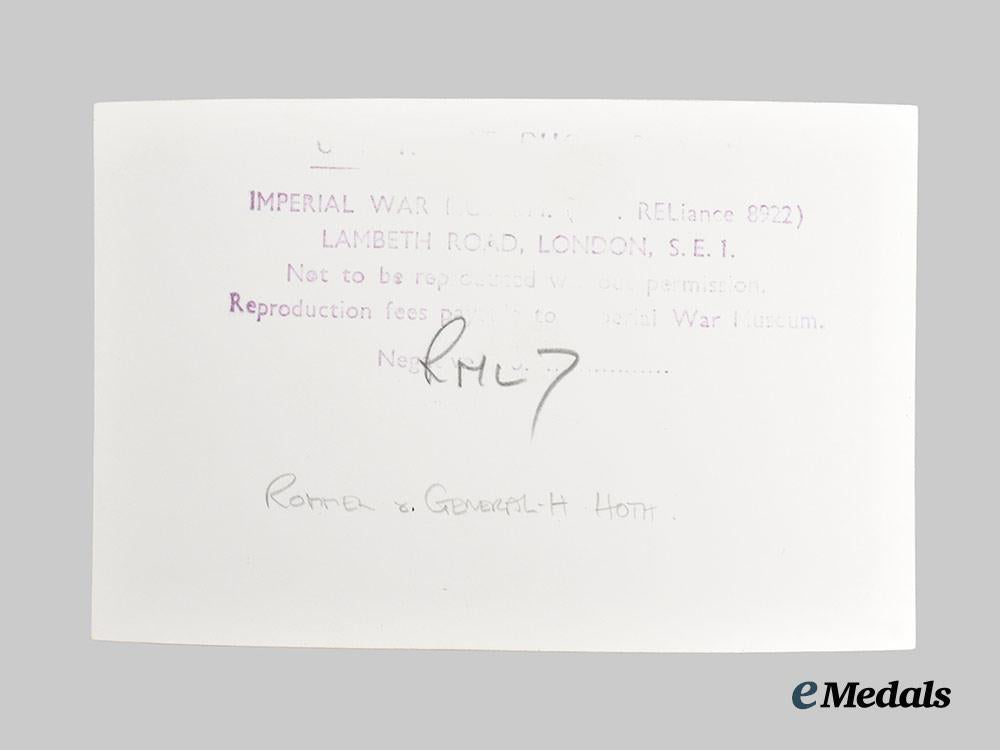 IMPERIAL WAR RELiance 8922)
LAMBETH ROAD, LONDON, S.E.1.
Not to be reproduced without permission.
Reproduction fees payable to Imperial War Museum.
RML 7
ROMMEL & GENERAL-H HOTH.
eMedals